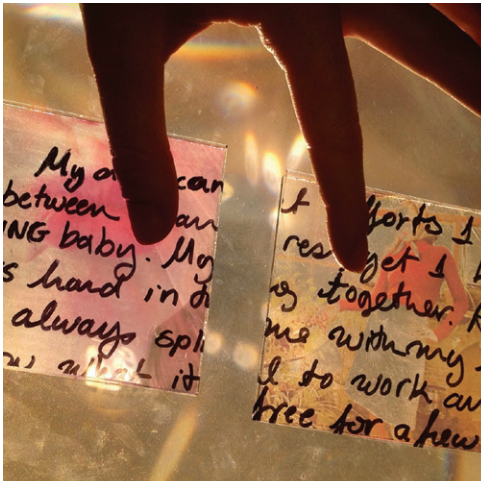 My can
between an
ING baby. My
s hard in
always spli
what it
t fforts I
res get I
together. R
me with my
l to work an
free for a few